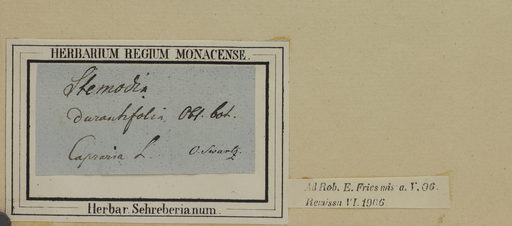 HERBARIUM REGIUM MONACENSE.
Stemodia
durantifolia Obs. bot.
Capraria L. O. Swartz
Herbar. Schreberianum.
Ad Rob. E. Fries mis a. V. 06.
Remissu VI. 1906